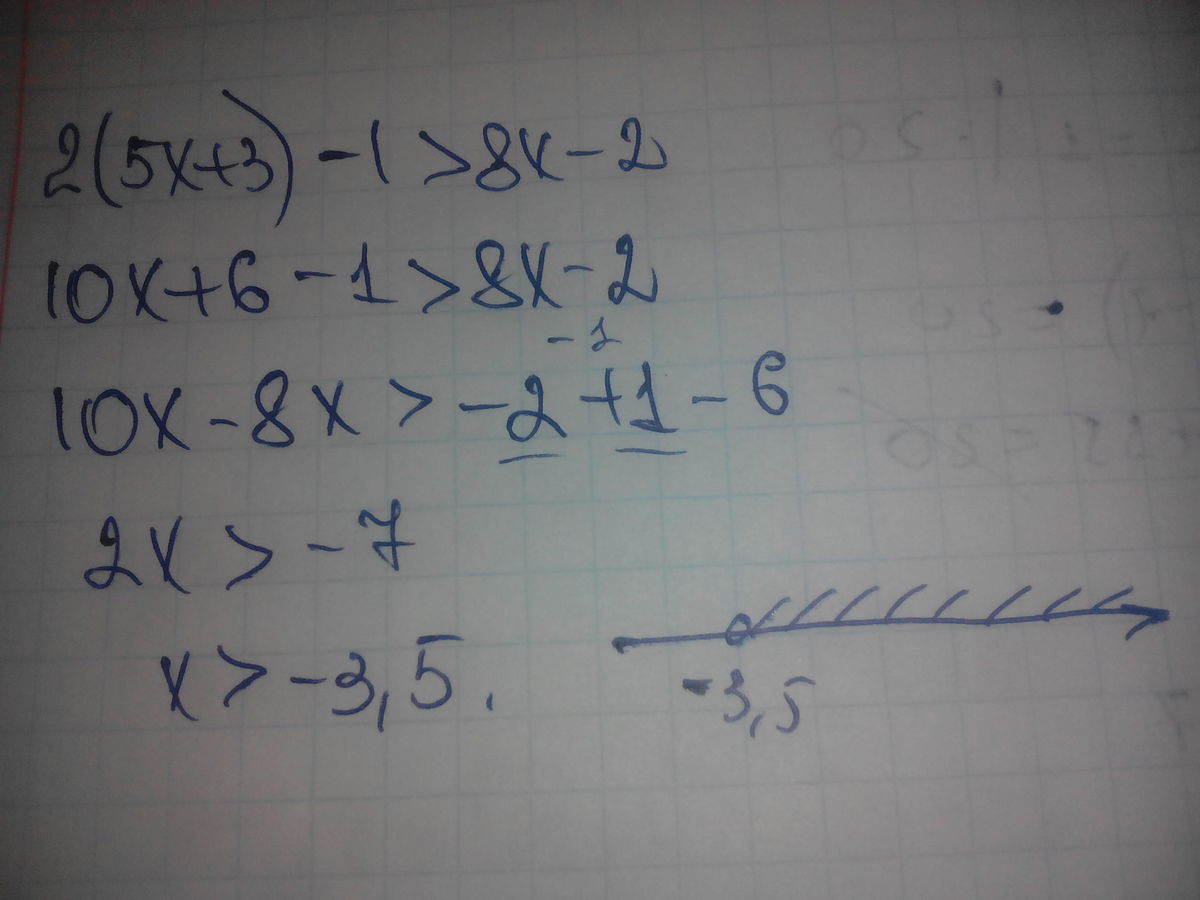 2(5x+3)-1>8x-2
10x+6-1>8x-2
-1
10x-8x>-2+1-6
2x>-7
x>-3,5.
-3,5